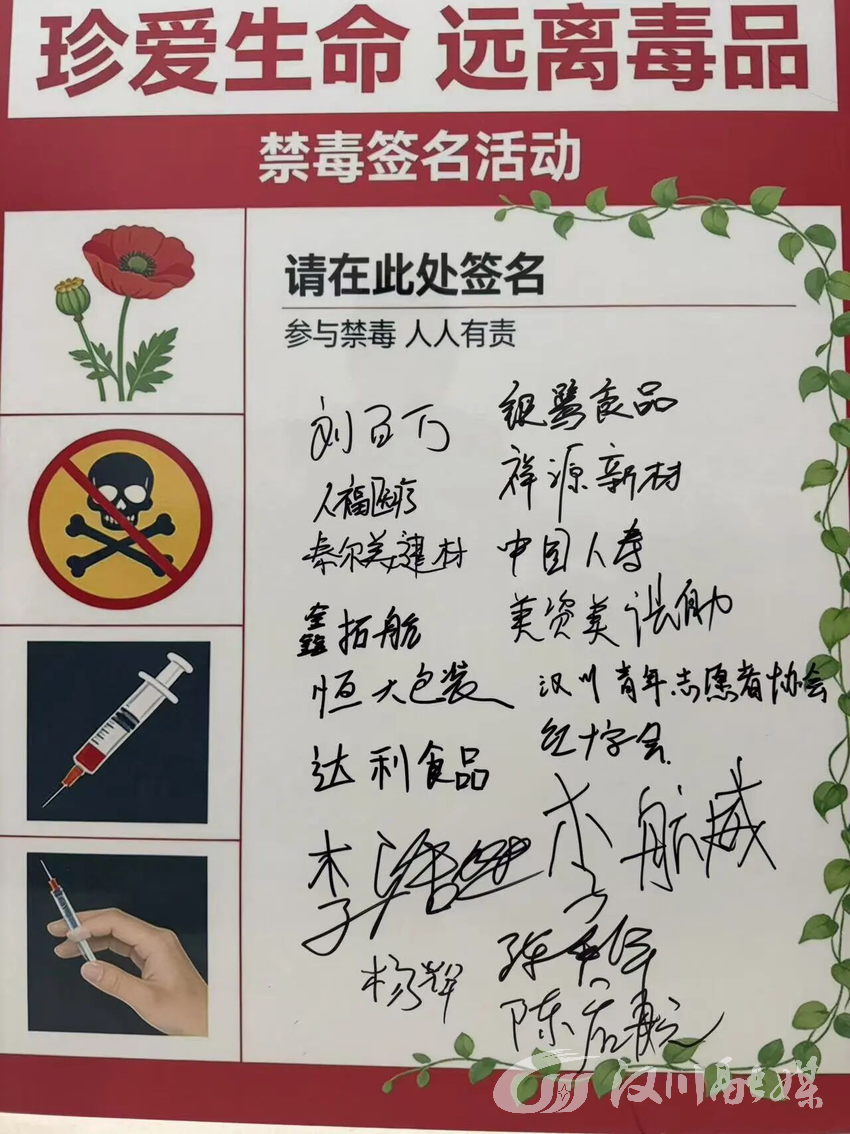 珍爱生命 远离毒品
禁毒签名活动
请在此处签名
参与禁毒 人人有责
刘百万
银鹭食品
人福医疗
祥源新材
泰尔美建材
中国人寿
鑫拓航
美资美
恒大包装
汉川青年志愿者协会
达利食品
红十字会
李
李航威
杨辉
陈
汉川融媒